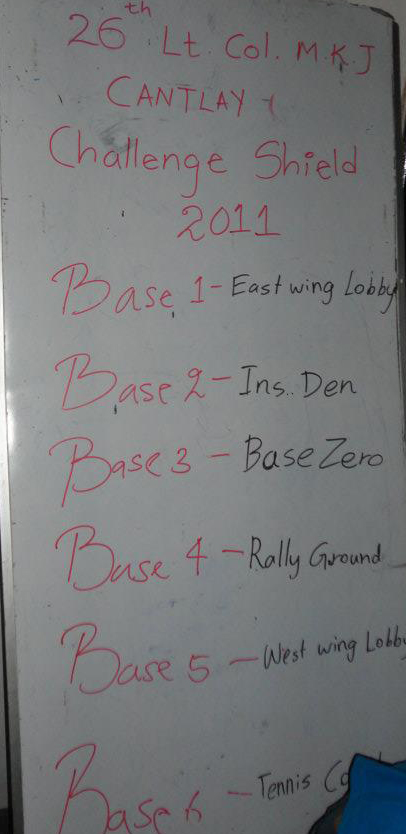 26th Lt. Col. M.K.J
CANTLAY
Challenge Shield
2011
Base 1- East wing Lobby
Base 2- Ins. Den
Base 3 - Base Zero
Base 4 - Rally Ground
Base 5 - West wing Lobby
Base 6 - Tennis